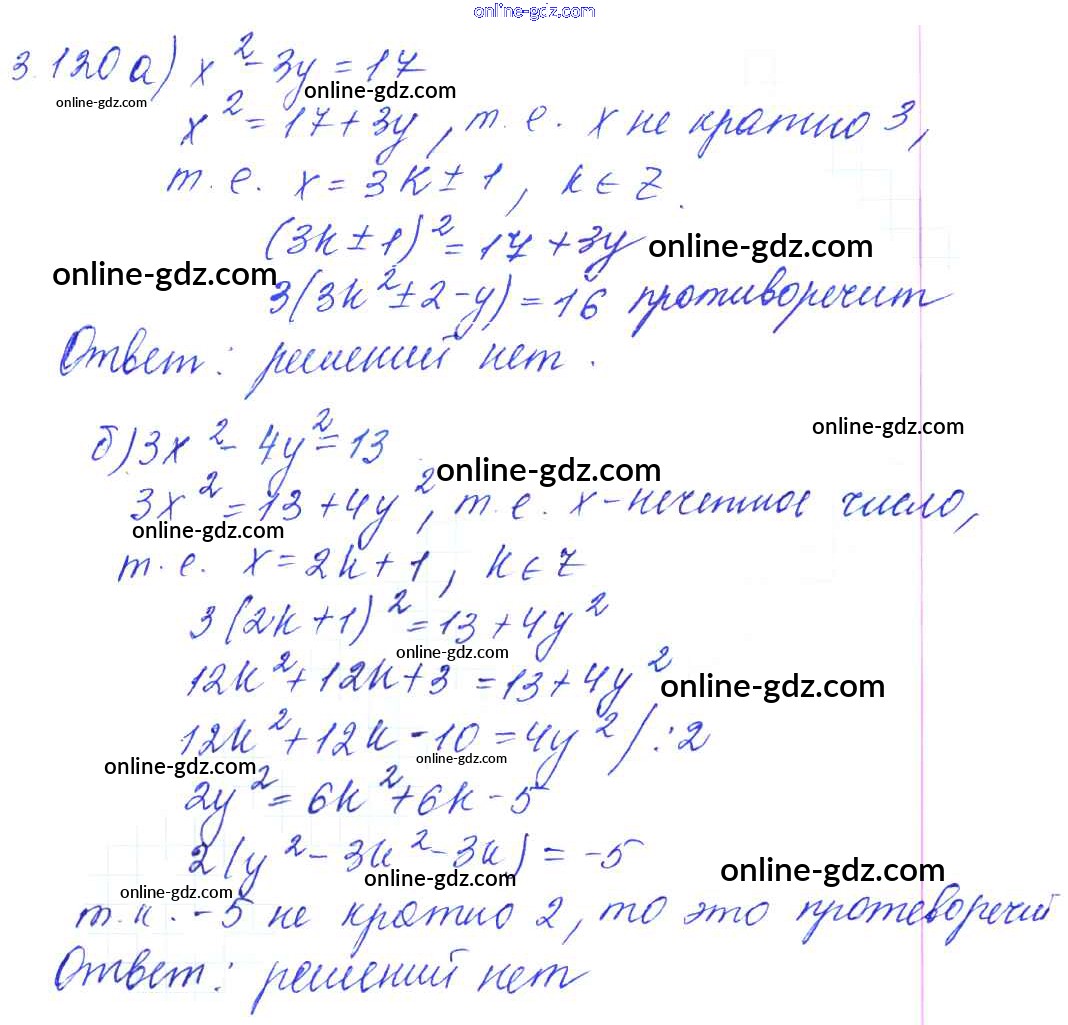 online-gdz.com
3.120 а) x² - 3y = 17
online-gdz.com online-gdz.com
x² = 17 + 3y, т.е. x не кратно 3,
т.е. x = 3k ± 1, k ∈ Z.
(3k ± 1)² = 17 + 3y online-gdz.com
online-gdz.com
3(3k² ± 2 - y) = 16 противоречит
Ответ: решений нет.
online-gdz.com
б) 3x² - 4y² = 13
online-gdz.com
3x² = 13 + 4y², т.е. x - нечетное число,
online-gdz.com
т.е. x = 2k + 1, k ∈ Z
3(2k + 1)² = 13 + 4y²
online-gdz.com
12k² + 12k + 3 = 13 + 4y² online-gdz.com
12k² + 12k - 10 = 4y² / : 2
online-gdz.com online-gdz.com
2y² = 6k² + 6k - 5
2(y² - 3k² - 3k) = -5
online-gdz.com online-gdz.com online-gdz.com
т.к. -5 не кратно 2, то это протеворечий
Ответ: решений нет